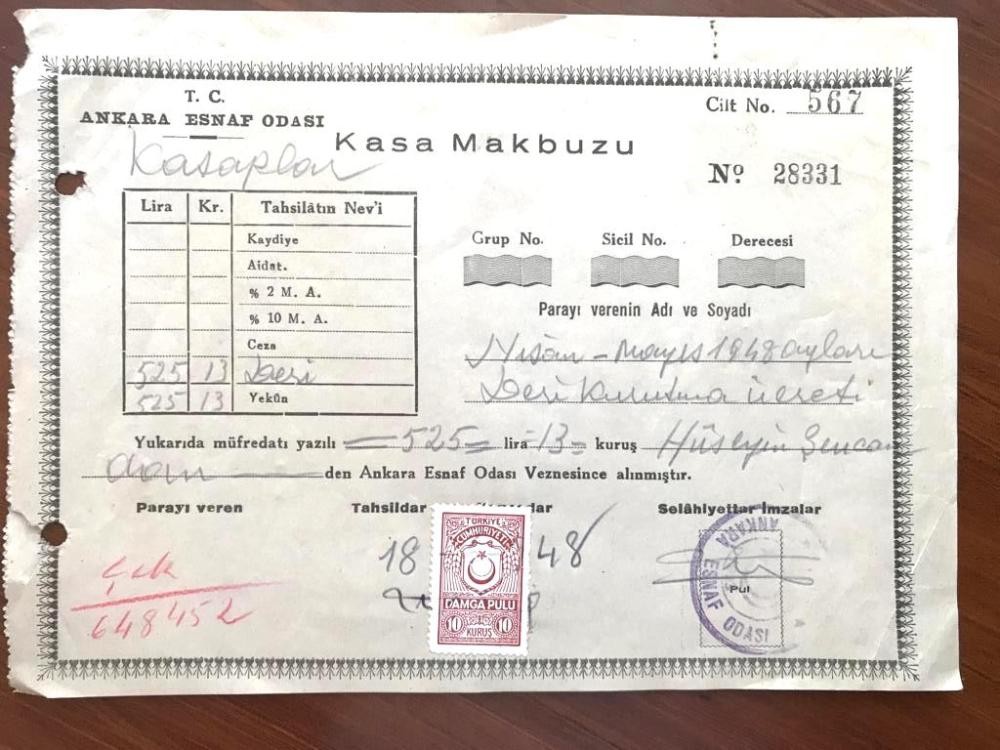 T. C.
ANKARA ESNAF ODASI
Cilt No. 567
Kasa Makbuzu
Kasaplar
Nº 28331
Lira Kr. Tahsilâtın Nev'i
Kaydiye
Aidat.
% 2 M. A.
% 10 M. A.
Ceza
525 13 Deri
525 13 Yekûn
Grup No. Sicil No. Derecesi
Parayı verenin Adı ve Soyadı
Nisan - Mayıs 1948 ayları
Deri kurutma ücreti
Yukarıda müfredatı yazılı = 525 = lira 13 = kuruş Hüseyin Şencan
dan den Ankara Esnaf Odası Veznesince alınmıştır.
Parayı veren Tahsildar Selâhiyettar İmzalar
18 48
TÜRKİYE
CUMHURİYETİ
DAMGA PULU
10 KURUŞ 10
Pul
ANKARA ESNAF ODASI
Çek
648452